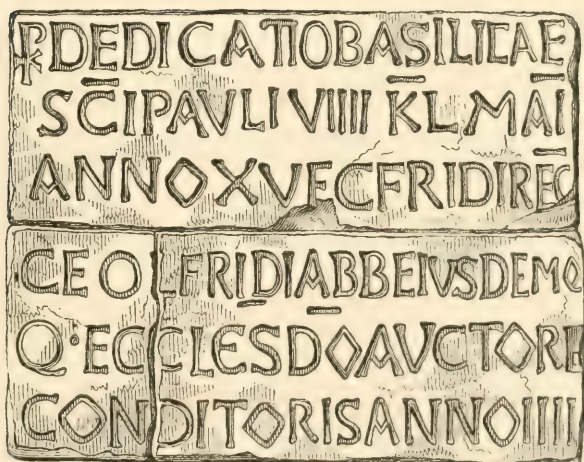 ☧ DEDICATIO BASILICAE
SC̄I PAVLI VIIII KL MAĪ
ANNO XV ECFRIDI REḠ
CEOLFRIDI ABB EIVSDEMQ
Q· ECCLES DO AVCTORE
CONDITORIS ANNO IIII